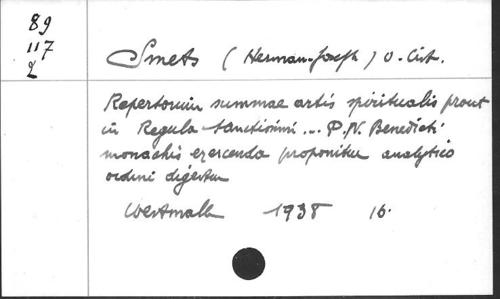 89
117
2
Smets (Herman-Joseph) O. Cist.
Repertorium summae artis spiritualis prout
in Regula sanctissimi ... P.N. Benedicti
monachis exercenda proponitur analytico
ordini digestum
Westmalle 1938 16.